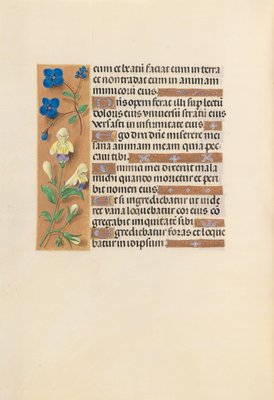 eum et beatu faciat eum in terra
et non tradat eum in animam
inimicorū eius.
Dñs opem ferat illi sup lectū
doloris eius universū stratū eius
versasti in infirmitate eius
Ego dixi dñe miserere mei
sana animam meam quia pec
cavi tibi
Inimici mei dixerūt mala
michi quando morietur et peri
bit nomen eius
Et si ingrediebatur ut vide
ret vana loquebatur cor eius co
gregabit iniquitatē sibi
Egrediebatur foras et loque
batur in idipsum